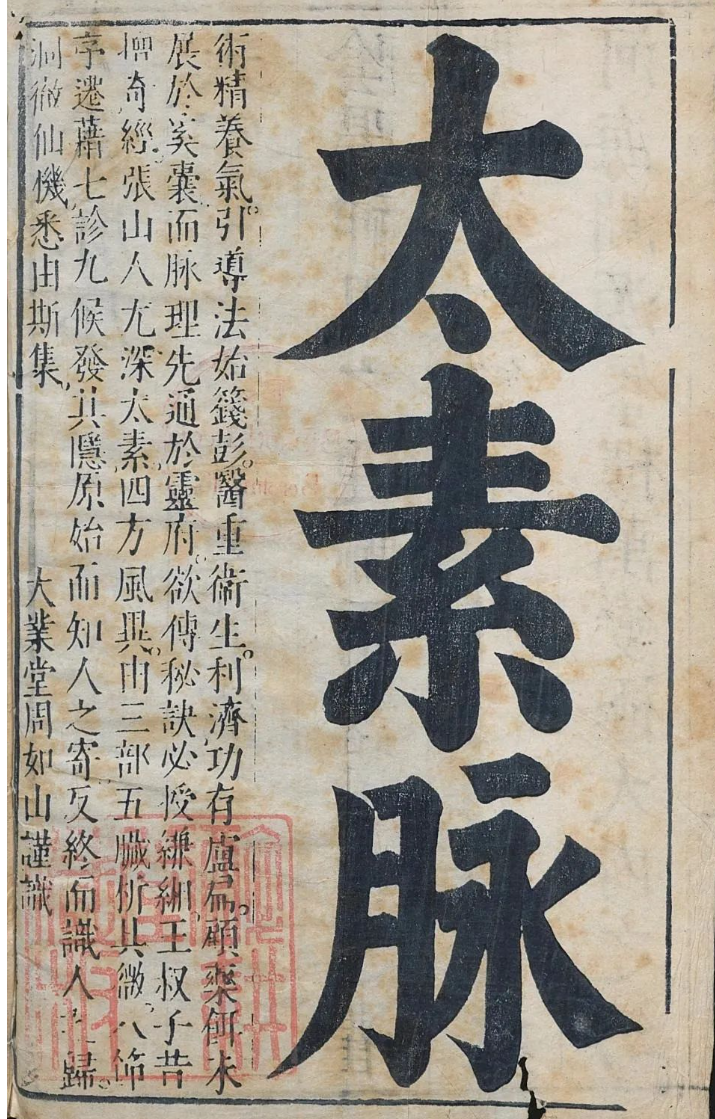 太素脉
術精養氣。引導法始籛彭。醫重衛生。利濟功有盧扁。顧藥餌未
展於奚囊。而脉理先通於靈府。欲傳秘訣必授縑緗。王叔子昔
撰奇經。張山人尤深太素。四方風異。由三部五臟折其微。八節
序遷。藉七診九候發其隱。原始而知人之寄。反終而識人之歸。
洞徹仙機。悉由斯集。
大業堂周如山謹識